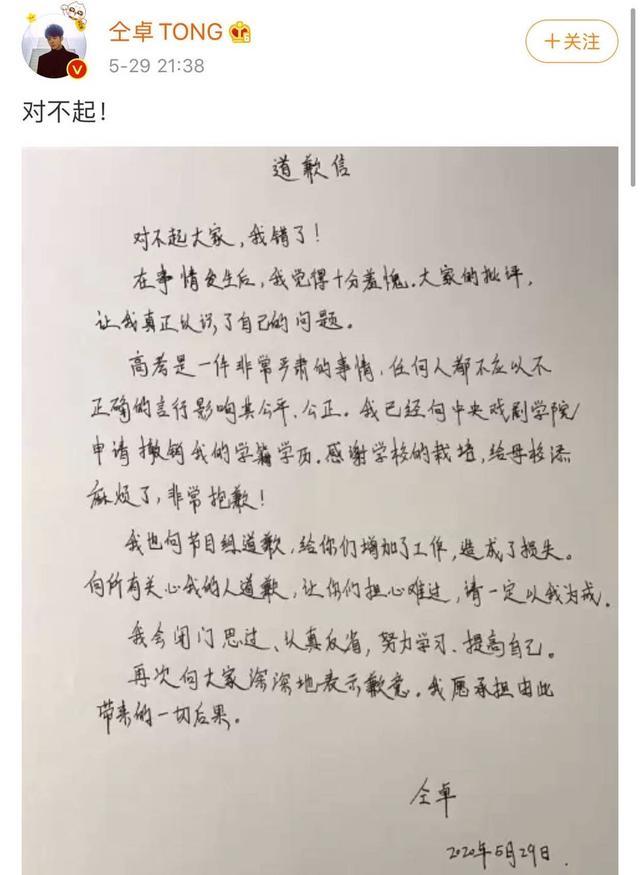 仝卓TONG
5-29 21:38
+关注
对不起!
道歉信
对不起大家,我错了!
在事情发生后,我觉得十分羞愧.大家的批评,
让我真正认识了自己的问题。
高考是一件非常严肃的事情,任何人都不应以不
正确的言行影响其公平、公正。我已经向中央戏剧学院
申请撤销我的学籍学历.感谢学校的栽培,给母校添
麻烦了,非常抱歉!
我也向节目组道歉,给你们增加了工作,造成了损失。
向所有关心我的人道歉,让你们担心难过,请一定以我为戒.
我会闭门思过、认真反省,努力学习、提高自己。
再次向大家深深地表示歉意。我愿承担由此
带来的一切后果。
仝卓
2020年5月29日.